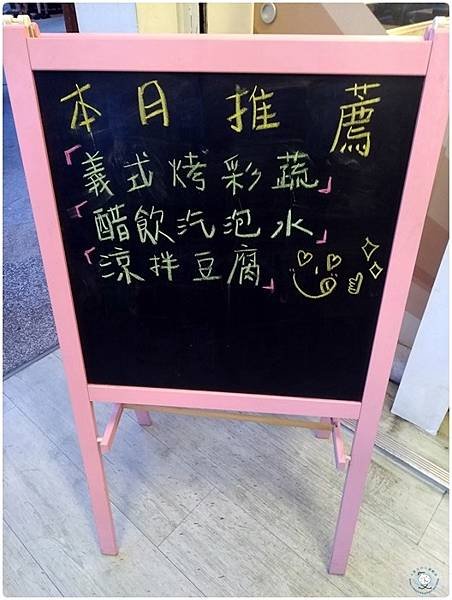 本日推薦
「義式烤彩蔬」
「醋飲汽泡水」
「涼拌豆腐」